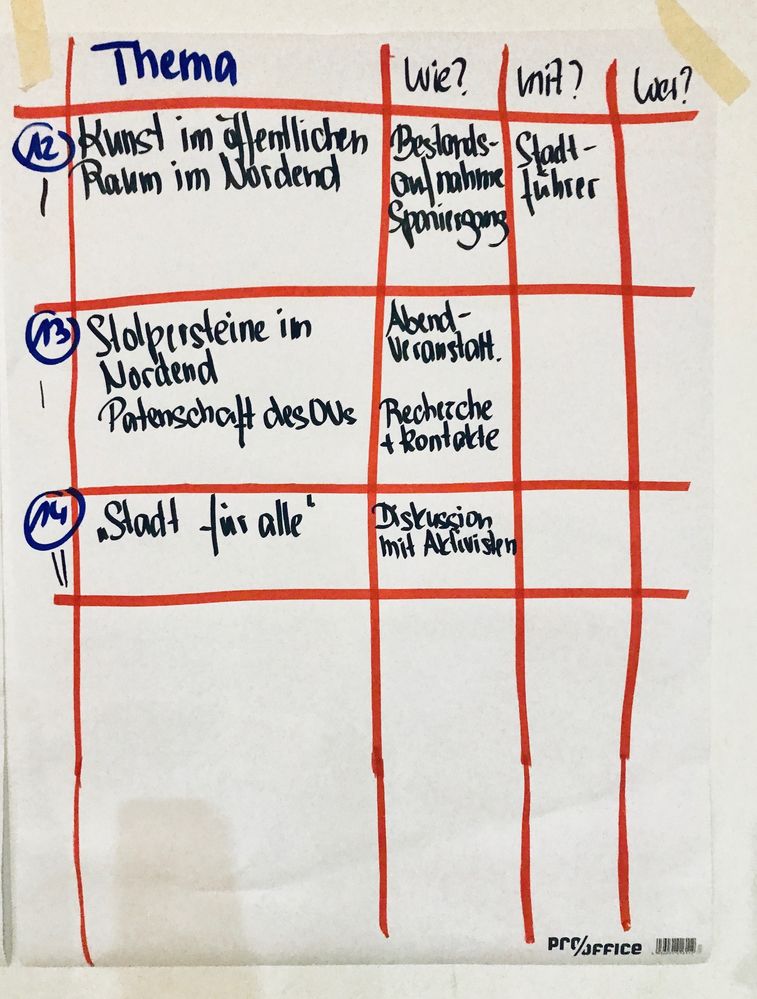 Thema
Wie?
mit?
wer?
12
Kunst im öffentlichen
Raum im Nordend
Bestands-
aufnahme
Spaziergang
Stadt-
führer
13
Stolpersteine im
Nordend
Patenschaft des OVs
Abend-
veranstalt.
Recherche
+ Kontakte
14
„Stadt für alle“
Diskussion
mit Aktivisten
PRO/OFFICE